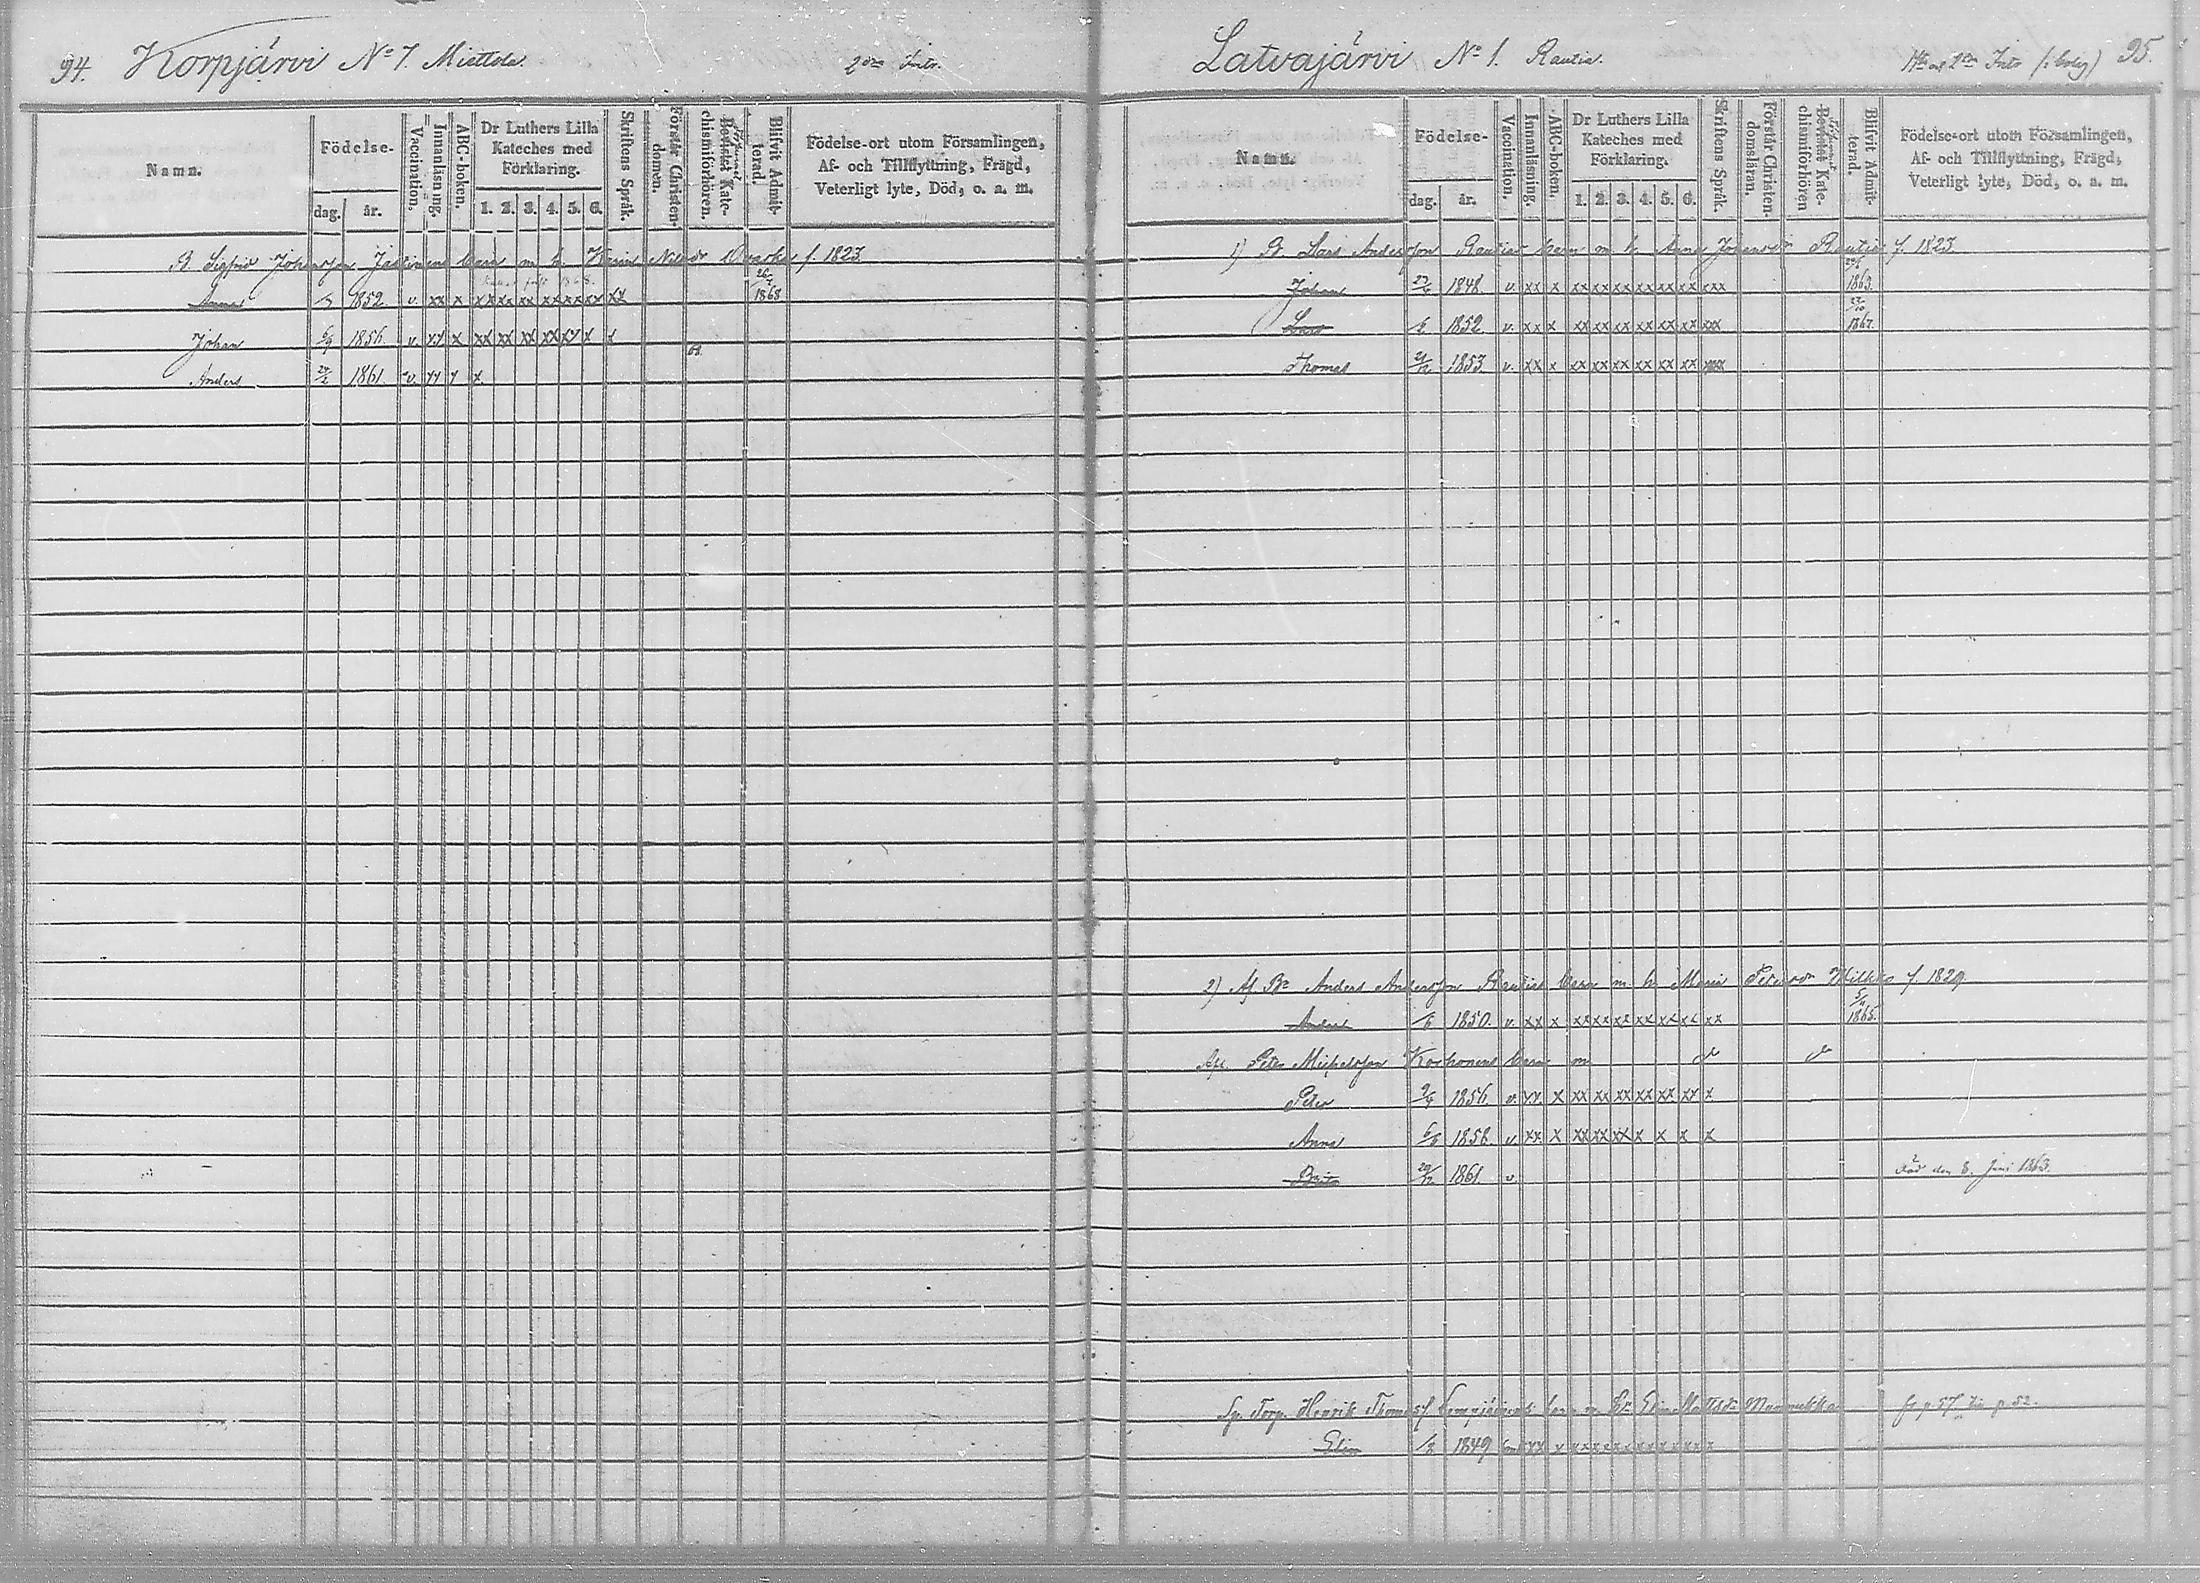 94. Korpjärvi No 7. Miettola 2dra Intr.
Namn.
Födelse-
dag. år.
Vaccination.
Innanläsning.
ABC-boken.
Dr Luthers Lilla Kateches med Förklaring.
1. 2. 3. 4. 5. 6.
Skriftens Språk.
Förstår Christendomen.
Bevistat Katechismiförhören.
Blifvit Admitterad.
Födelse-ort utom Församlingen, Af- och Tillflyttning, Frägd, Veterligt lyte, Död, o. a. m.
B. Sigfrid Johansson barn m. h. Karin Nilsdr f. 1823
Anna 1852 v. xx x xx xx xx xx xx xx xx 1868
Johan 6/9 1856 v. xx x xx xx xx xx xx x x
Anders 24/2 1861 v. xx x x
Latvajärvi No 1. Rautia. 95.
Namn.
Födelse-
dag. år.
Vaccination.
Innanläsning.
ABC-boken.
Dr Luthers Lilla Kateches med Förklaring.
1. 2. 3. 4. 5. 6.
Skriftens Språk.
Förstår Christendomsläran.
Bevistat Katechismiförhören
Blifvit Admitterad.
Födelse-ort utom Församlingen, Af- och Tillflyttning, Frägd, Veterligt lyte, Död, o. a. m.
1) B. Lars Andersson Rautias barn m. h. Anna Johansdr Rautia f. 1823
Johan 1848 v. xx x xx xx xx xx xx xx xxx 1863.
Lars 1852 v. xx x xx xx xx xx xx xx xxx 1867.
Thomas 21/12 1853 v. xx x xx xx xx xx xx xx
2) Af. Br Anders Andersson Rautias barn m. h. Maria Petersdr f. 1829
Anders 1850. v. xx x xx xx xx xx xx xx xx 5/11 1865.
Afl. Peter Michelsson Korhonens barn m
Peter 1856 v. xx x xx xx xx xx xx xx x
Anna 6/8 1858 v. xx x xx xx xx x x x x
Brita 29/12 1861 v. Död den 8. Juni 1863.
Torp. Henrik Thomass barn m. Elin Mattsdr fr p 57 p 52.
Elin 1849 xx x